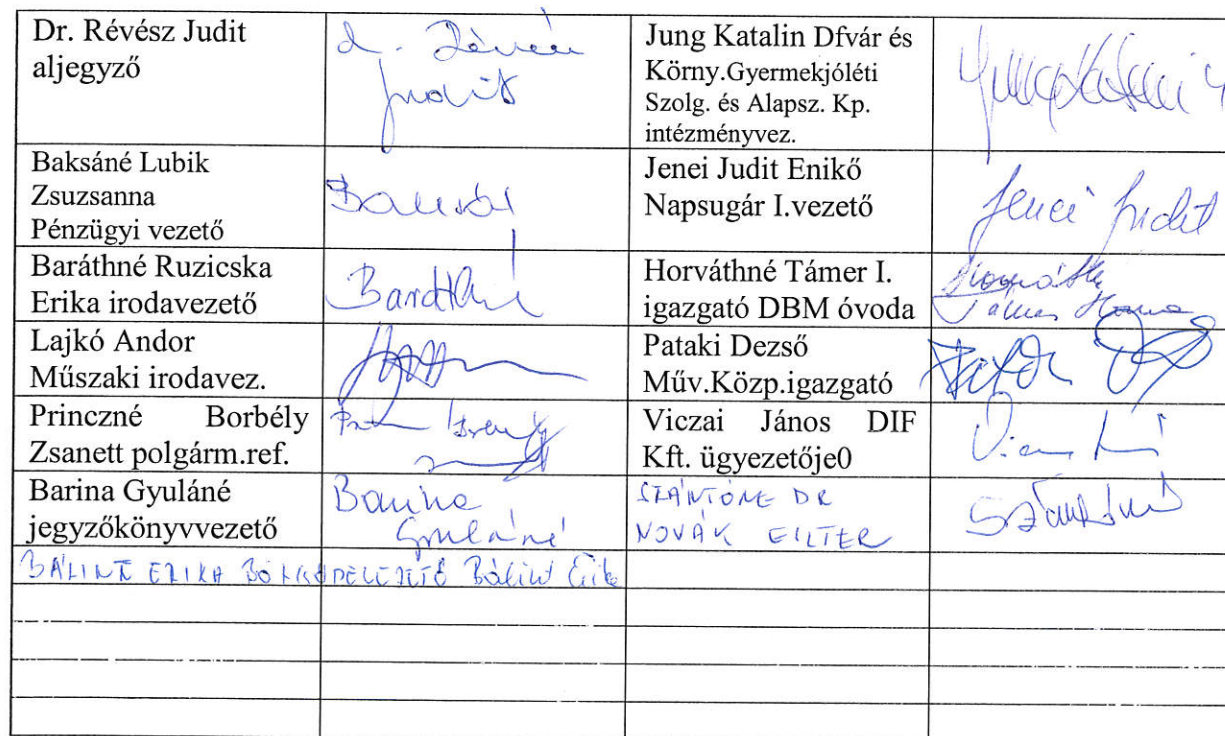 Dr. Révész Judit
aljegyző
Judit
Jung Katalin Dfvár és
Körny.Gyermekjóléti
Szolg. és Alapsz. Kp.
intézményvez.
Jung Katalin
Baksáné Lubik
Zsuzsanna
Pénzügyi vezető
Jenei Judit Enikő
Napsugár I.vezető
Jenei Judit
Baráthné Ruzicska
Erika irodavezető
Baráthné
Horváthné Támer I.
igazgató DBM óvoda
Lajkó Andor
Műszaki irodavez.
Pataki Dezső
Műv.Közp.igazgató
Princzné Borbély
Zsanett polgárm.ref.
Viczai János DIF
Kft. ügyezetője0
Barina Gyuláné
jegyzőkönyvvezető
Barina
Gyuláné
SZÁNTÓNÉ DR
NOVÁK ESZTER
Szántóné
BÁLINT ERIKA Bálint Erika